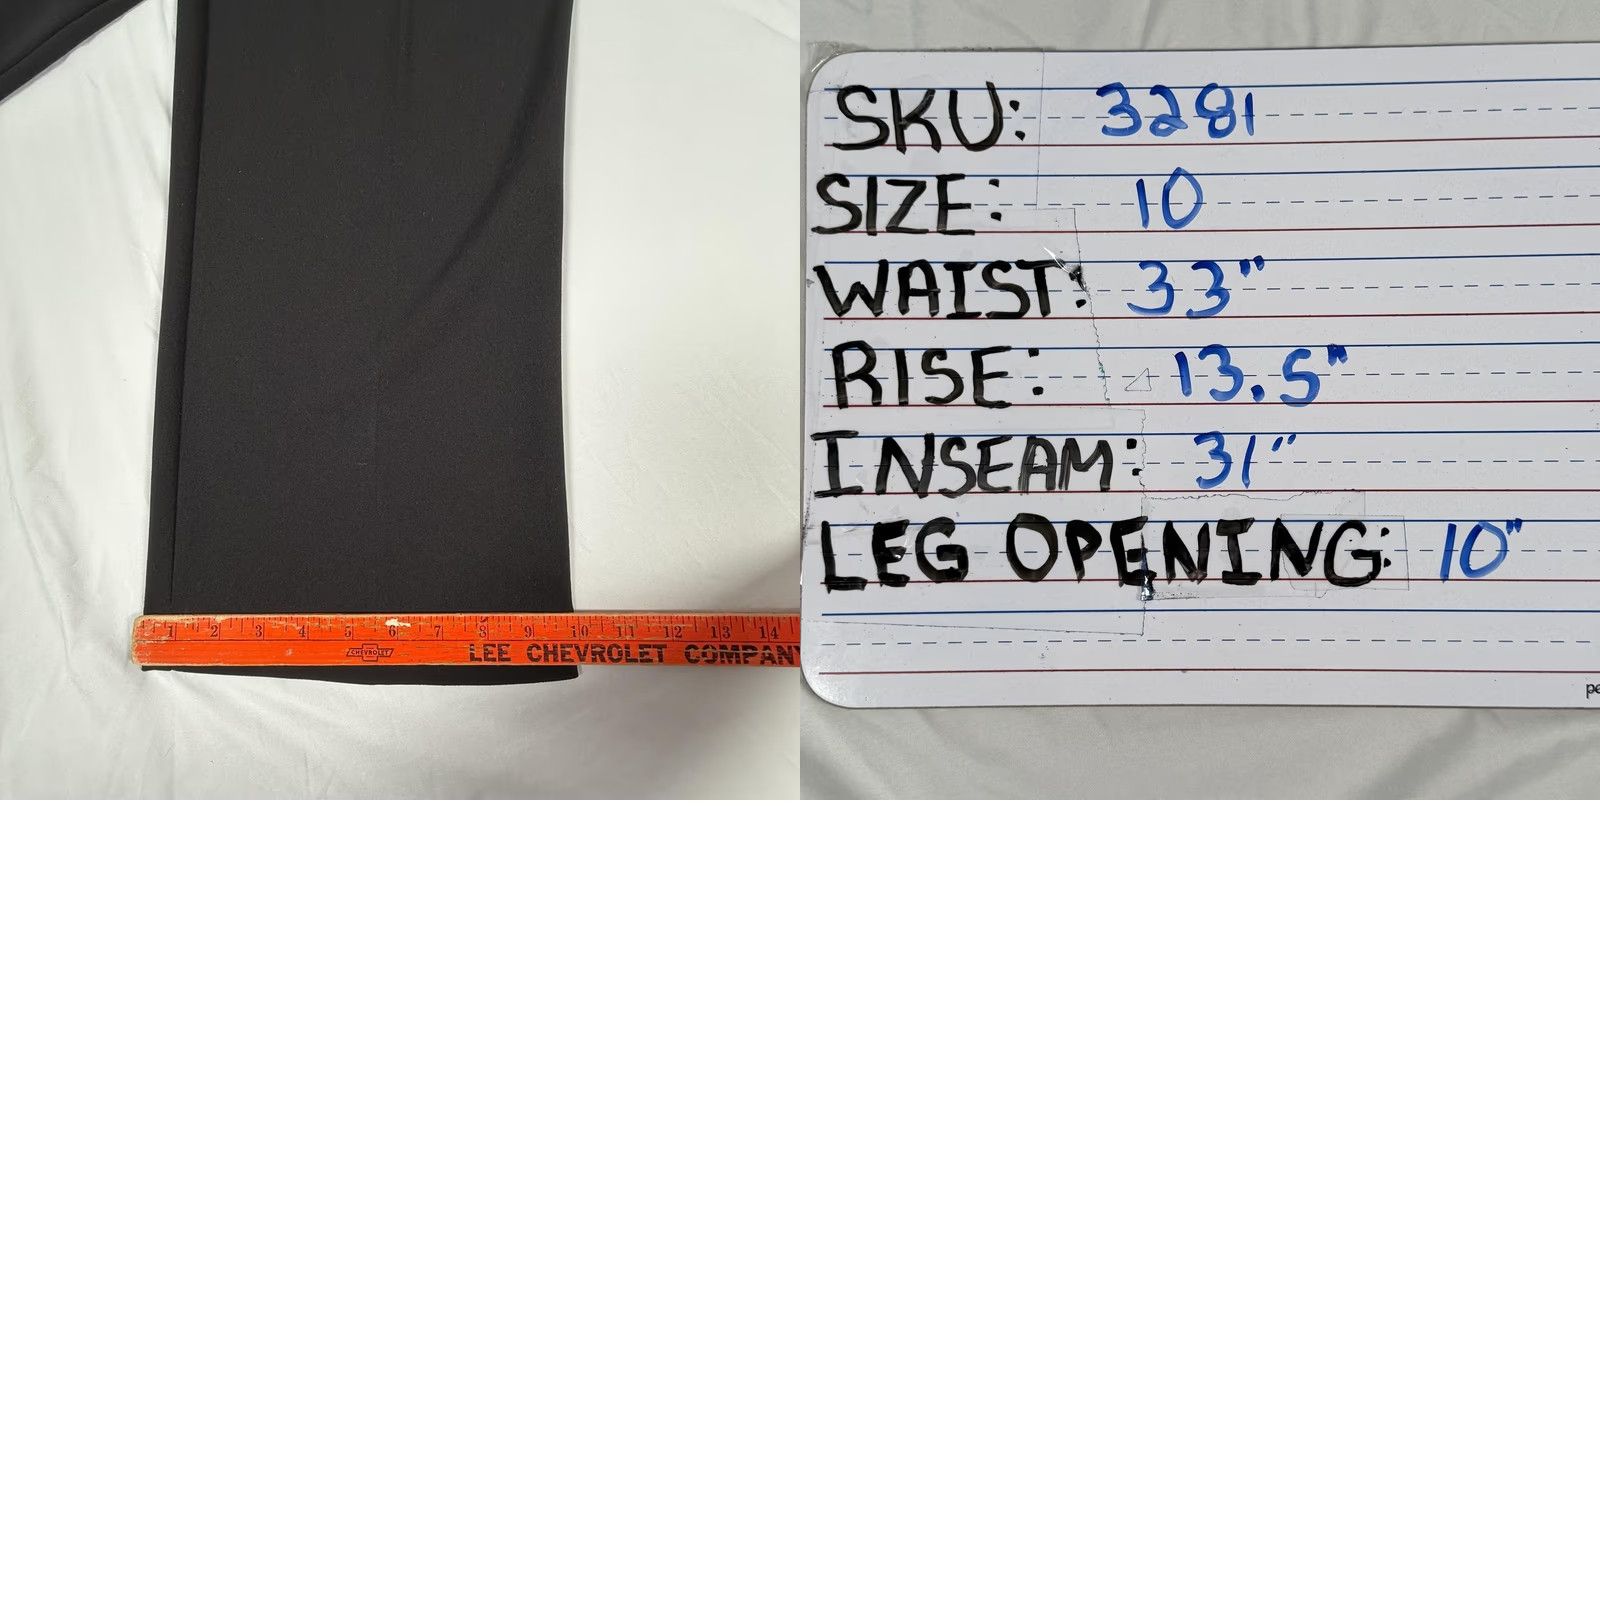 1 2 3 4 5 6 7 8 9 10 11 12 13 14
CHEVROLET LEE CHEVROLET COMPANY
SKU: 3281
SIZE: 10
WAIST: 33"
RISE: 13.5"
INSEAM: 31"
LEG OPENING: 10"